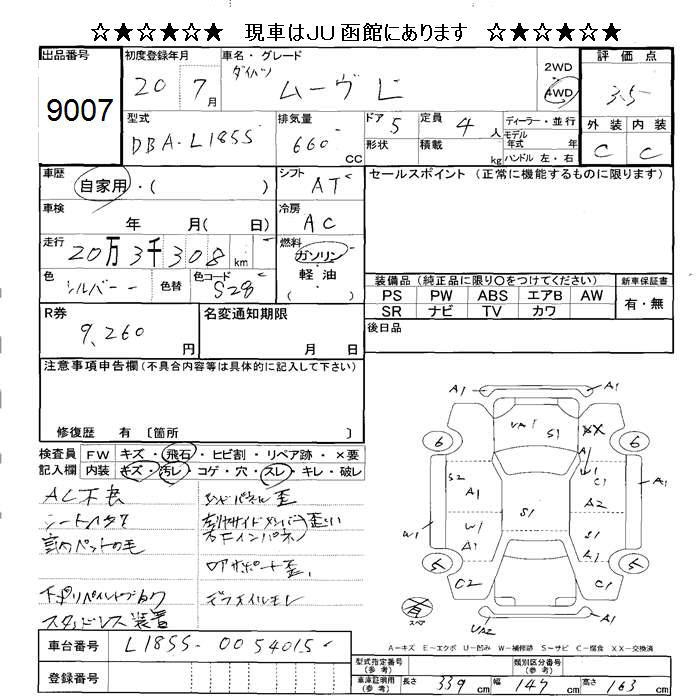 ☆★☆★☆ 現車はJU函館にあります ☆★☆★☆
出品番号 初度登録年月 車名・グレード 2WD 評価点
9007 20 7月 ダイハツ ムーヴ L 4WD 3.5
型式 排気量 ドア 定員 ディーラー・並行 外装 内装
DBA-L185S 660 CC 5 4人 モデル年式 年式 C C
形状 積載 kg ハンドル 左・右
車歴 シフト セールスポイント (正常に機能するものに限ります)
自家用・( ) AT
車検 冷房
年 月( 日) AC
走行 燃料
20万3千308km ガソリン
色 色替 色コード 軽油
シルバー S28 ( )
装備品 (純正品に限り○をつけてください) 新車保証書
PS PW ABS エアB AW 有・無
SR ナビ TV カワ
R券 名変通知期限 後日品
9,260円 月 日
注意事項申告欄(不具合内容等は具体的に記入して下さい)
修復歴 有 〔箇所 〕
検査員 FW キズ・飛石・ヒビ割・リペア跡・×要
記入欄 内装 キズ・汚レ・コゲ・穴・スレ・キレ・破レ
AC不良
室内ペットの毛
スタッドレス装着
A1 A1
UA1 S1 XX
6 6
A1
W1
S2 A1 C1
A2
A1 S1 W1 A1 S1 A1
W1
5 5
C2 C1
有 スペア
UA2 A1
A-キズ E-エクボ U-凹み W-補修跡 S-サビ C-腐食 XX-交換済
車台番号 L185S-0054015
登録番号
型式指定番号(参考) 類別区分番号(参考)
車庫証明用(参考) 長さ 339 cm 幅 147 cm 高さ 163 cm